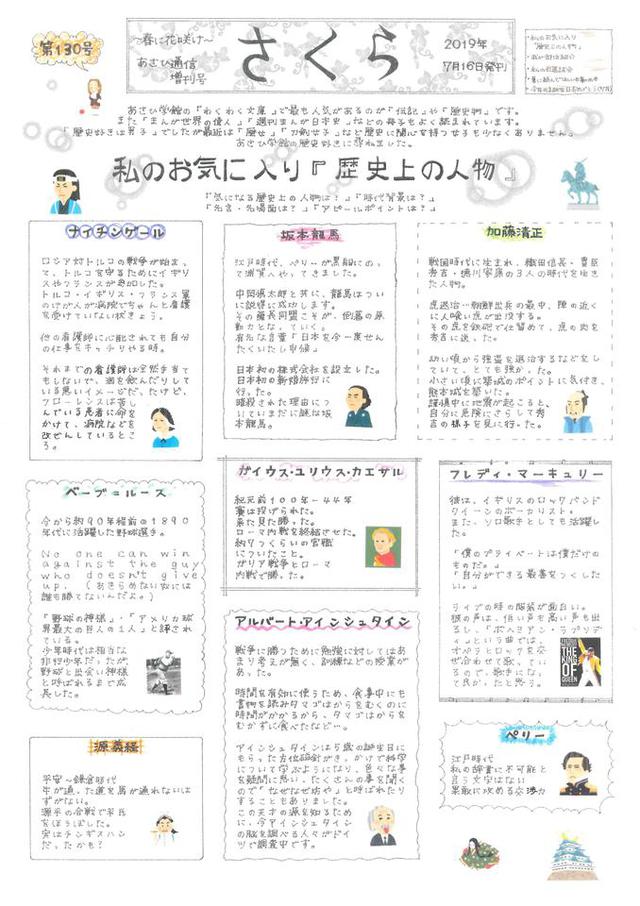 第130号
~春に花咲け~
あさひ通信
増刊号
さくら
2019年
7月16日発刊
・私のお気に入り
『歴史上の人物』
あさひ学館の「わくわく文庫」で最も人気があるのが「伝記」や「歴史物」です。
また「まんが世界の偉人」「週刊まんが日本史」などの冊子もよく読まれています。
「歴史好きは男子」でしたが最近は「歴女」「刀剣女子」など歴史に関心を持つ女子も少なくありません。
あさひ学館の歴史好きに尋ねました。
私のお気に入り『歴史上の人物』
「気になる歴史上の人物は?」「時代背景は?」
「名言・名場面は?」「アピールポイントは?」
ナイチンゲール
ロシア対トルコの戦争が始まっ
て、トルコを守るためにイギリス
やフランスが参加した。
トルコ・イギリス・フランス軍
のけが人が病院でちゃんと看護
を受けていない状きょう。
他の看護師に心配されても自分
の仕事をキッチリやる所。
それまでの看護師は全然手当て
もしないで、酒を飲んだりして
いる悪いイメージだ。だけど、
フローレンスは苦し
んでいる患者に命を
かけて、病院などを
改ぜんしているとこ
ろ。
坂本龍馬
江戸時代、ペリーが黒船にのっ
て浦賀へやってきました。
中岡慎太郎と共に、龍馬はつい
に説得に成功します。
その薩長同盟こそが、倒幕の原
動力となっていく。
有名な言葉「日本を今一度せん
たくいたし申候」
日本初の株式会社を設立した。
日本初の新婚旅行に
行った。
暗殺された理由につ
いていまだに謎な坂
本龍馬。
加藤清正
戦国時代に生まれ、織田信長・豊臣
秀吉・徳川家康の3人の時代を生き
た人物。
虎退治…朝鮮出兵の最中、陣の近く
に人喰い虎が出没する。
その虎を鉄砲で仕留めて、虎の肉を
秀吉に送った。
幼い頃から強盗を退治するなどをし
ていて、とても強かった。
小さい頃に築城のポイントに気付き、
熊本城を築いた。
謹慎中に地震が起こると、
自分に危険にさらして秀
吉の様子を見に行った。
ベーブ=ルース
今から約90年程前の1890
年代に活躍した野球選手。
No one can win
against the guy
who doesn't give
up. (あきらめない奴には
誰も勝てないんだよ。)
「野球の神様」・「アメリカ球
界最大の巨人の1人」と評され
ている。
少年時代は相当な
非行少年だったが、
野球と出会い神様
と呼ばれるまで成
長した。
ガイウス・ユリウス・カエサル
紀元前100年-44年
賽は投げられた。
来た見た勝った。
ローマ内戦を終結させた。
終りつくらいの官職
についたこと。
ガリア戦争とローマ
内戦で勝った。
フレディ・マーキュリー
彼は、イギリスのロックバンド
クイーンのボーカリスト。
また、ソロ歌手としても活躍し
た。
「僕のプライベートは僕だけの
ものだ。」
「自分ができる最善をつくした
い。」
ライブの時の服装が面白い。
彼の声は、低い声も高い声も出
るし、「ボヘミアン・ラプソデ
ィ」という曲では、
オペラとロックを交
ぜ合わせて歌ってい
るので、歌手になっ
て良かったと思う。
THE
KING
OF
QUEEN
アルバート・アインシュタイン
戦争に勝つために勉強に対してはあ
まり考えが無く、訓練などの授業が
あった。
時間を有効に使うため、食事中にも
書物を読みタマゴはからをむくのに
時間がかかるから、タマゴはからを
むかずに食べたなど…。
アインシュタインは5歳の誕生日に
もらった方位磁針がきっかけで科学
について学ぶようになり、色々な事
を疑問に思い、たくさんの事を聞く
ので「なぜなぜ坊や」と呼ばれたり
することもありました。
この天才の源を知るため
に、今アインシュタイン
の脳を調べる人々がドイ
ツで調査中です。
源義経
平安~鎌倉時代
牛が通った道を馬が通れないは
ずがない。
源平の合戦で平氏
をほろぼした。
実はチンギスハン
だったかも?
ペリー
江戸時代
私の辞書に不可能と
言う文字はない
果敢に攻める交渉力